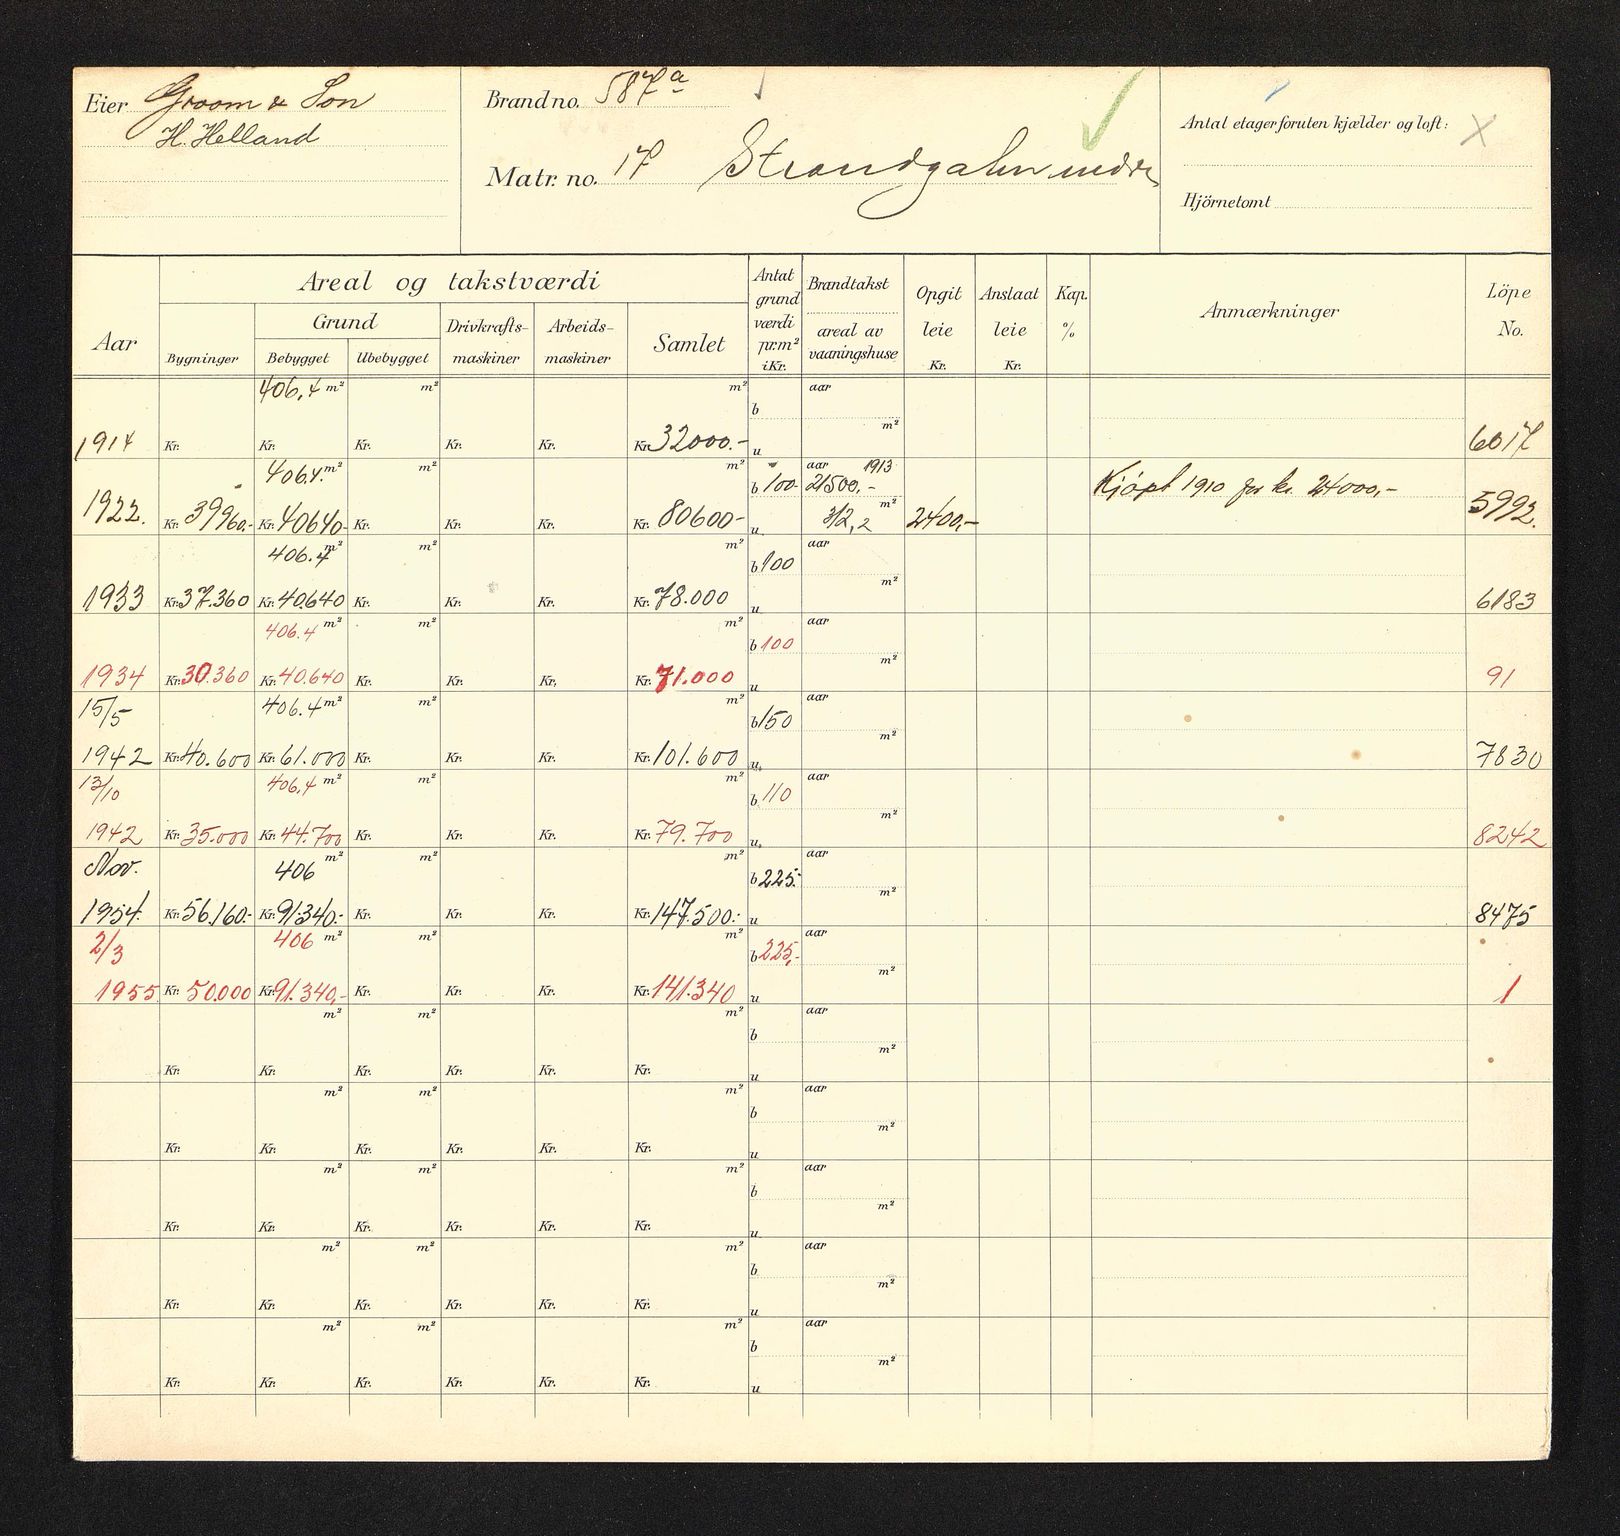 Eier Groom & Søn
H. Helland
Brandno. 587a
Matr. no. 17 Strandgaten nedre
Antal etager foruten kjælder og loft:
Hjörnetomt
Aar
Areal og takstværdi
Grund
Bygninger
Bebygget
Ubebygget
Drivkrafts-
maskiner
Arbeids-
maskiner
Samlet
Antat
grund
værdi
pr.m²
i Kr.
Brandtakst
areal av
vaaningshuse
Opgit
leie
Kr.
Anslaat
leie
Kr.
Kap.
%
Anmærkninger
Löpe
No.
406,4 m² m² m² aar
b
m²
1914 Kr. Kr. Kr. Kr. Kr. Kr. 32000.- u 6017
406.4. m² m² m² b 100- aar 1913
21500,- Kjöpt 1910 for kr. 24000,-
m²
1922. Kr. 39960,- Kr. 40640- Kr. Kr. Kr. Kr. 80600- u 312,2 2400,- 5992.
406.4 m² m² m² aar
b 100
m²
1933 Kr. 37.360 Kr. 40.640 Kr. Kr. Kr. Kr. 78.000 u 6183
406.4 m² m² m² aar
b 100
m²
1934 Kr. 30.360 Kr. 40.640 Kr. Kr. Kr. Kr. 71.000 u 91
15/5 406.4 m² m² m² aar
b 150
m²
1942 Kr. 40.600 Kr. 61.000 Kr. Kr. Kr. Kr. 101.600 u. 7830
13/10 406,4 m² m² m² aar
b. 110
m²
1942 Kr. 35.000 Kr. 44.700 Kr. Kr. Kr. Kr. 79.700 u. 8242
Nov. 406 m² m² m² aar
b 225.-
m²
1954. Kr. 56.160.- Kr. 91.340.- Kr. Kr. Kr. Kr. 147.500.- u 8475
2/3 406 m² m² m² aar
b 225,-
m²
1955 Kr. 50.000 Kr. 91.340,- Kr. Kr. Kr. Kr. 141.340 u 1
m² m² m² aar
b
m²
Kr. Kr. Kr. Kr. Kr. Kr. u
m² m² m² aar
b
m²
Kr. Kr. Kr. Kr. Kr. Kr. u
m² m² m² aar
b
m²
Kr. Kr. Kr. Kr. Kr. Kr. u
m² m² m² aar
b
m²
Kr. Kr. Kr. Kr. Kr. Kr. u
m² m² m² aar
b
m²
Kr. Kr. Kr. Kr. Kr. Kr. u